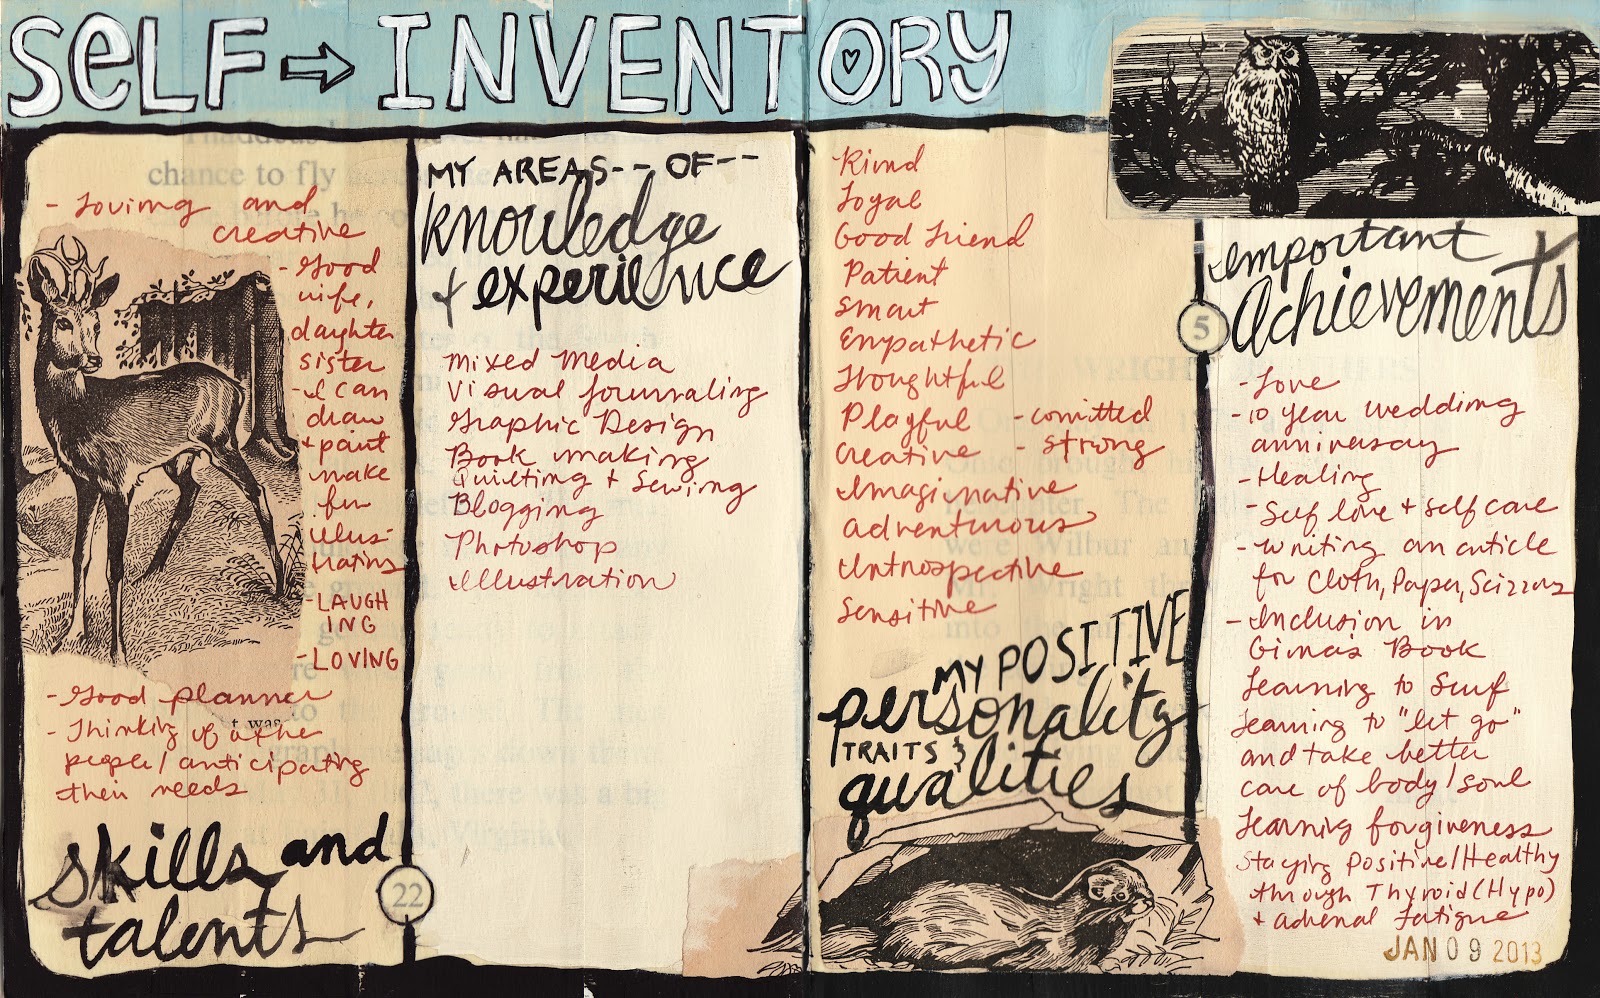 SELF → INVENTORY
- Loving and
creative
- Good
wife,
daughter
sister
- I can
draw
+ paint
make
fun
illus-
trations
- LAUGH
ING
- LOVING
- Good planner
- Thinking of othe
people/anticipating
their needs
skills and
talents
22
MY AREAS -- OF --
knowledge
+ experience
Mixed Media
Visual Journaling
Graphic Design
Book making
Quilting + Sewing
Blogging
Photoshop
Illustration
Kind
Loyal
Good Friend
Patient
Smart
Empathetic
Thoughtful
Playful - comitted
Creative - strong
Imaginative
adventurous
Introspective
Sensitive
MY POSITIVE
personality
TRAITS &
qualities
5
important
achievements
- Love
- 10 year wedding
anniversay
- Healing
- Self love + self care
- writing an article
for Cloth, Paper, Scizzors
- Inclusion in
Gina's Book
Learning to Surf
Learning to "let go"
and take better
care of body/soul
Learning forgiveness
Staying Positive/Healthy
through Thyroid (Hypo)
+ adrenal fatigue
JAN 09 2013
chance to fly
t was